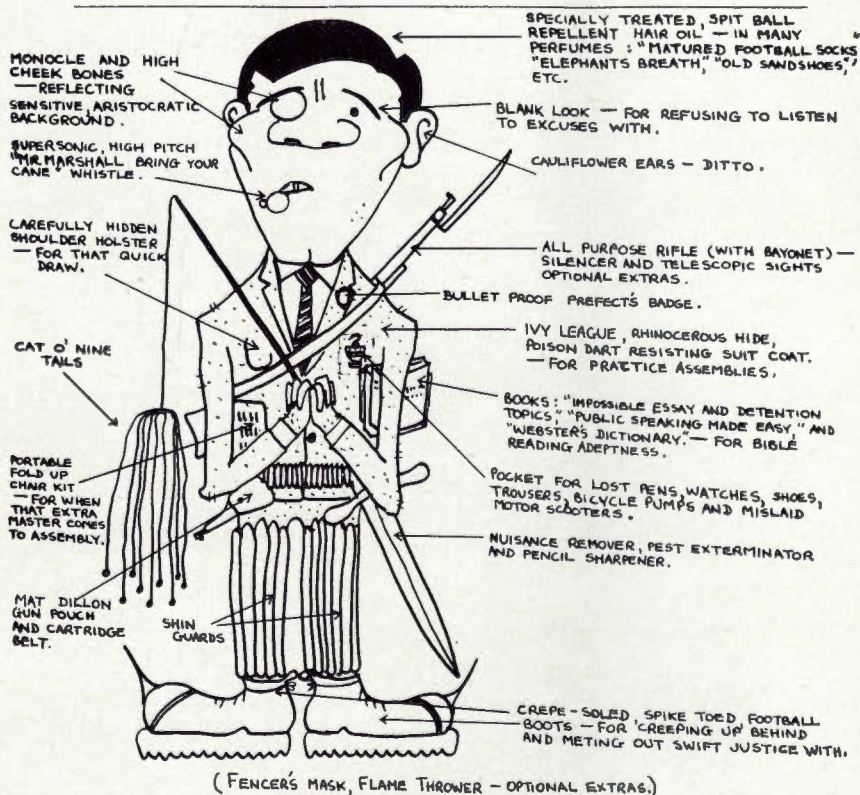 MONOCLE AND HIGH
CHEEK BONES
— REFLECTING
SENSITIVE, ARISTOCRATIC
BACKGROUND.
SUPERSONIC, HIGH PITCH
"MR. MARSHALL BRING YOUR
CANE" WHISTLE.
CAREFULLY HIDDEN
SHOULDER HOLSTER
— FOR THAT QUICK
DRAW.
CAT O' NINE
TAILS
PORTABLE
FOLD UP
CHAIR KIT
— FOR WHEN
THAT EXTRA
MASTER COMES
TO ASSEMBLY.
MAT DILLON
GUN POUCH
AND CARTRIDGE
BELT.
SHIN
GUARDS
SPECIALLY TREATED, SPIT BALL
REPELLENT HAIR OIL — IN MANY
PERFUMES : "MATURED FOOTBALL SOCKS"
"ELEPHANTS BREATH," "OLD SANDSHOES,"
ETC.
BLANK LOOK — FOR REFUSING TO LISTEN
TO EXCUSES WITH.
CAULIFLOWER EARS — DITTO.
ALL PURPOSE RIFLE (WITH BAYONET) —
SILENCER AND TELESCOPIC SIGHTS
OPTIONAL EXTRAS.
BULLET PROOF PREFECT'S BADGE.
IVY LEAGUE, RHINOCEROUS HIDE,
POISON DART RESISTING SUIT COAT.
— FOR PRACTICE ASSEMBLIES.
BOOKS : "IMPOSSIBLE ESSAY AND DETENTION
TOPICS," "PUBLIC SPEAKING MADE EASY," AND
"WEBSTER'S DICTIONARY." — FOR BIBLE
READING ADEPTNESS.
POCKET FOR LOST PENS, WATCHES, SHOES,
TROUSERS, BICYCLE PUMPS AND MISLAID
MOTOR SCOOTERS.
NUISANCE REMOVER, PEST EXTERMINATOR
AND PENCIL SHARPENER.
CREPE-SOLED, SPIKE TOED, FOOTBALL
BOOTS — FOR CREEPING UP BEHIND
AND METING OUT SWIFT JUSTICE WITH.
(FENCER'S MASK, FLAME THROWER — OPTIONAL EXTRAS.)